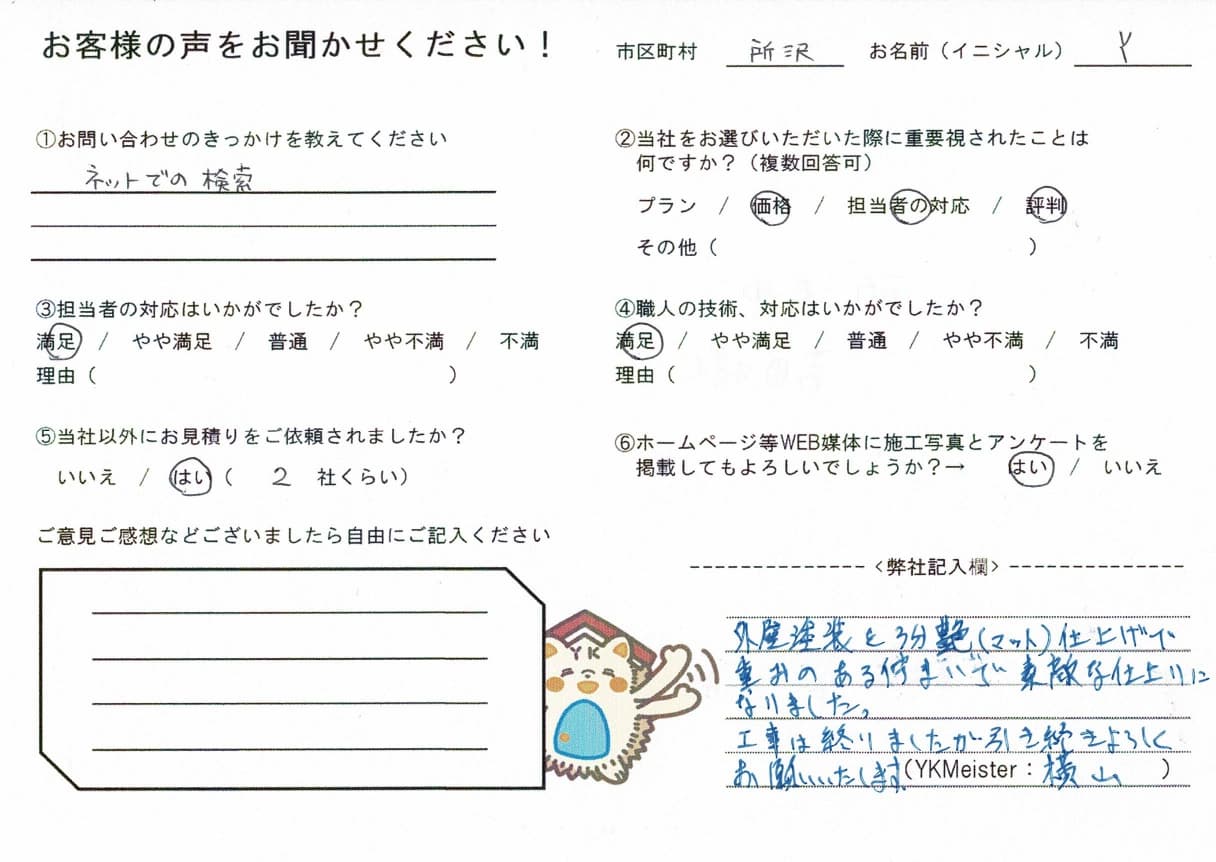 お客様の声をお聞かせください！
市区町村 所沢 お名前（イニシャル） Y
①お問い合わせのきっかけを教えてください
ネットでの検索
②当社をお選びいただいた際に重要視されたことは
何ですか？（複数回答可）
プラン / 価格 / 担当者の対応 / 評判
その他（ ）
③担当者の対応はいかがでしたか？
満足 / やや満足 / 普通 / やや不満 / 不満
理由（ ）
④職人の技術、対応はいかがでしたか？
満足 / やや満足 / 普通 / やや不満 / 不満
理由（ ）
⑤当社以外にお見積りをご依頼されましたか？
いいえ / はい（ 2 社くらい）
⑥ホームページ等WEB媒体に施工写真とアンケートを
掲載してもよろしいでしょうか？→ はい / いいえ
ご意見ご感想などございましたら自由にご記入ください
YK
<弊社記入欄>
外壁塗装を3分艶(マット)仕上げで
重みのある佇まいで素敵な仕上りに
なりました。
工事は終りましたが引き続きよろしく
お願いいたします(YKMeister：横山 )